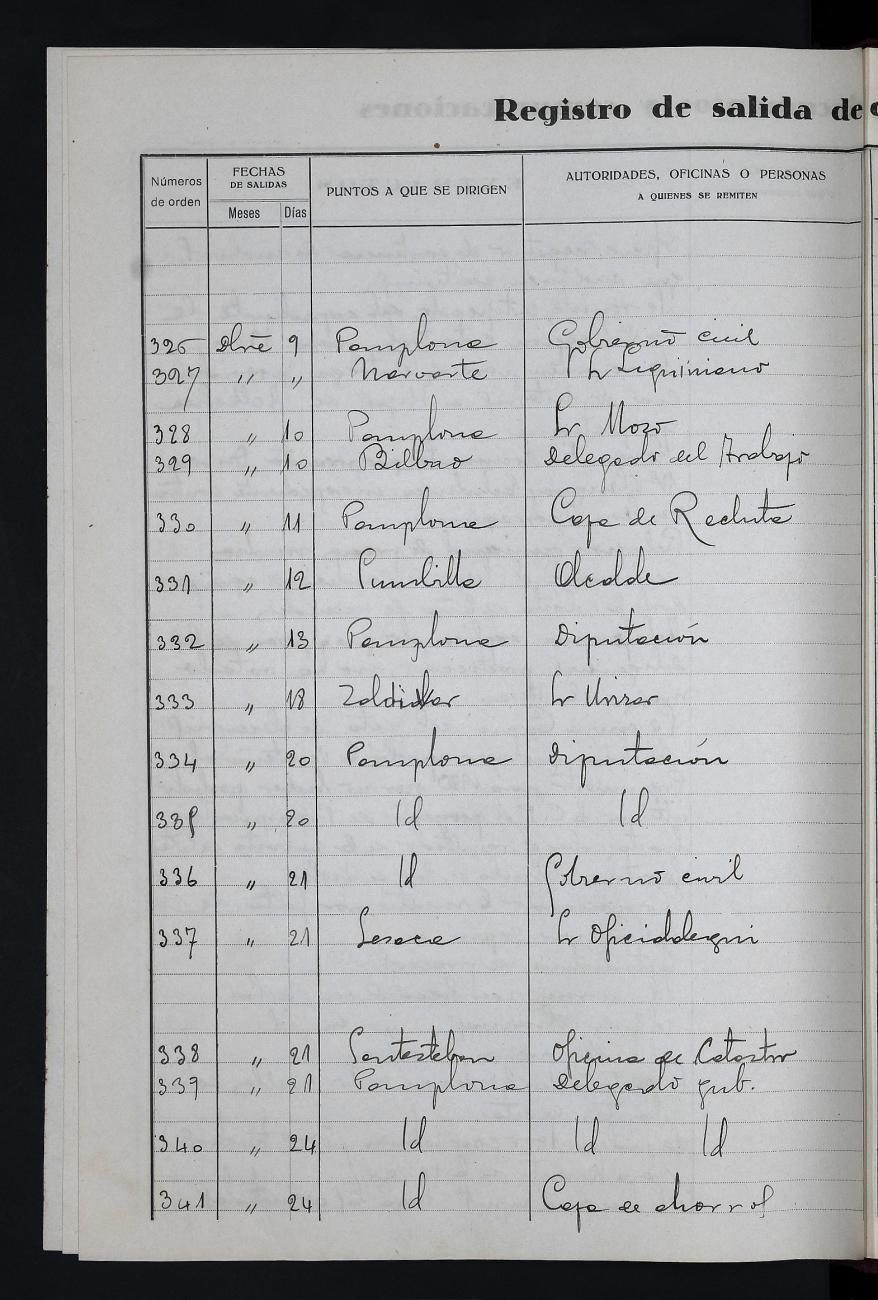 Registro de salida de
Números de orden FECHAS DE SALIDAS Meses Días PUNTOS A QUE SE DIRIGEN AUTORIDADES, OFICINAS O PERSONAS A QUIENES SE REMITEN
326 Dbre 9 Pamplona Gobierno civil
327 " " Narvarte Sr
328 " 10 Pamplona Sr Mozo
329 " 10 Bilbao Delegado del Trabajo
330 " 11 Pamplona Caja de Recluta
331 " 12 Sumbilla Alcalde
332 " 13 Pamplona Diputación
333 " 18 Sr
334 " 20 Pamplona Diputación
335 " 20 Id Id
336 " 21 Id Gobierno civil
337 " 21 Lesaca Sr
338 " 21 Santesteban Oficina de Catastro
339 " 21 Pamplona Delegado gub.
340 " 24 Id Id Id
341 " 24 Id Caja de ahorros